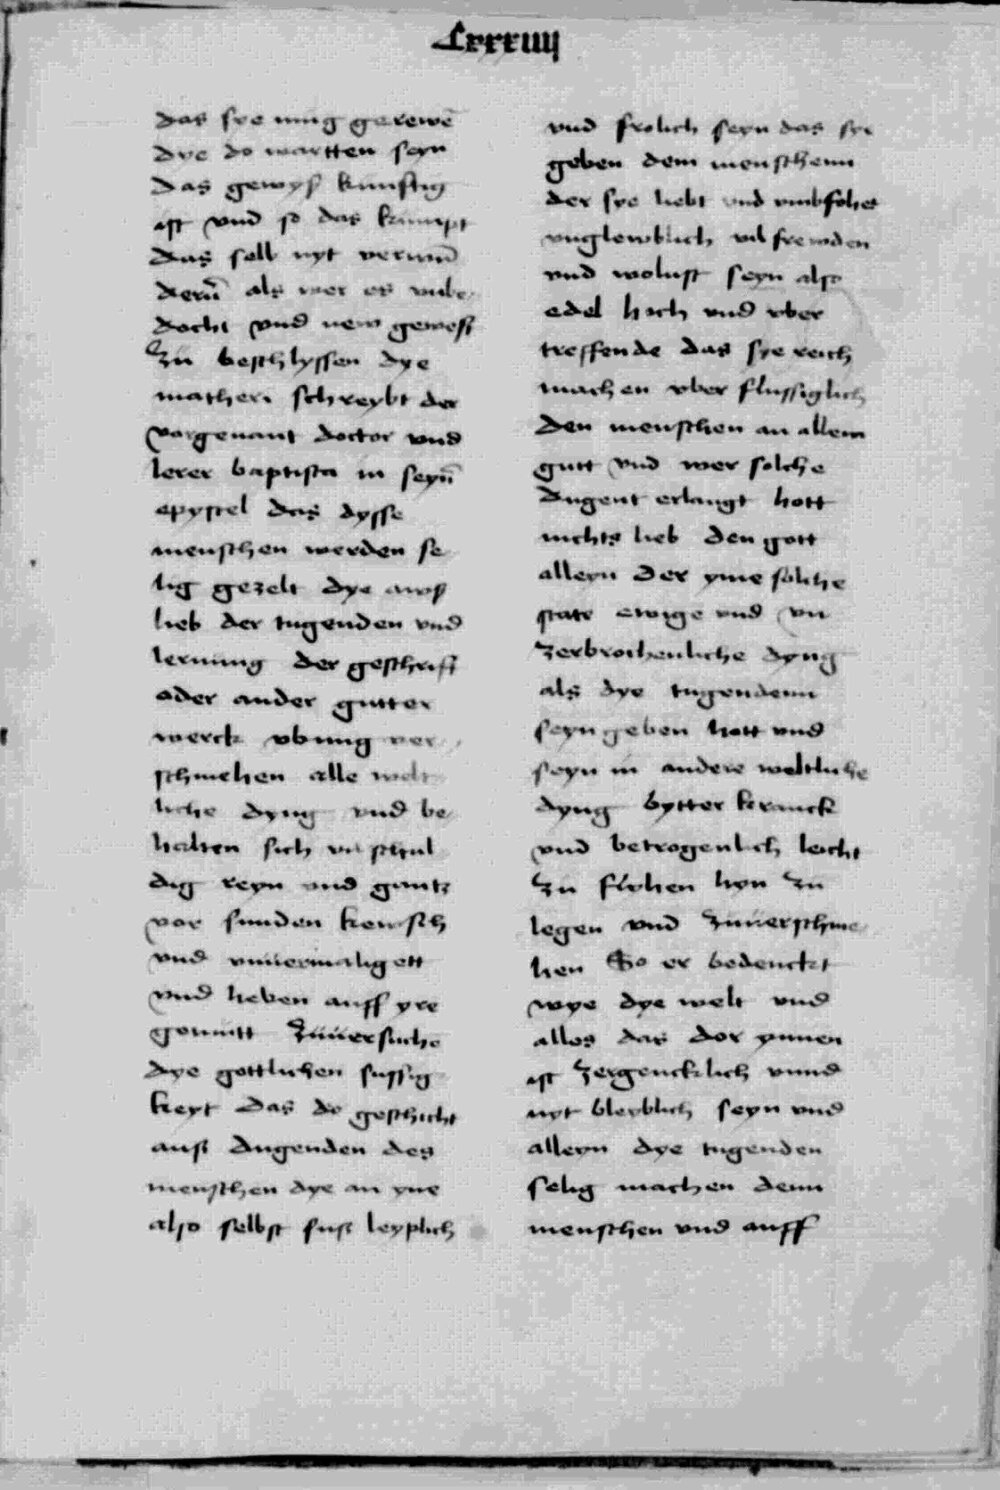 Lxxxiiij
das sye mug gerewē
dye do wartten seyn
das gewyß kunftig
ist vnd so das kumpt
das selb nyt verwū
derñ als wer es vnbe
dacht vnd new gewest
Zu beschlyssen dye
matheri schreybt der
vorgenant doctor vnd
lerer baptista in seyñ
epystel das dysse
menschen werden se
lig gezelt dye awß
lieb der tugenden vnd
lernung der geschrift
oder ander gutter
werck vbung ver
schmehen alle welt
liche dyng vnd be
halten sich vnschul
dig reyn vnd gantz
vor sunden kewsch
vnd vnuermaligett
vnd heben auff yre
gemutt zuuersuche
dye gottlichen sussig
keyt das do geschicht
auß dugenden des
menschen dye an yne
also selbst sust leyplich
vnd frolich seyn das sye
geben dem menschenn
der sye liebt vnd vmbfohet
vnglewblich vil frewden
vnd wolust seyn also
edel hoch vnd vber
treffende das sye reich
machen vber flussiglich
den menschen an allem
gutt vnd wer solche
dugent erlangt hott
nichts lieb den gott
alleyn der yme solche
state ewige vnd vn
zerbrochenliche dyng
als dye tugendenn
seyn geben hott vnd
seyn in andere weltliche
dyng bytter kranck
vnd betrogenlich leicht
zu flyhen hyn zu
legen vnd zuuerschme
hen So er bedenckt
wye dye welt vnd
alles das dor ynnen
ist zergencklich vnnd
nyt bleyblich seyn vnd
alleyn dye tugenden
selig machen denn
menschen vnd auff